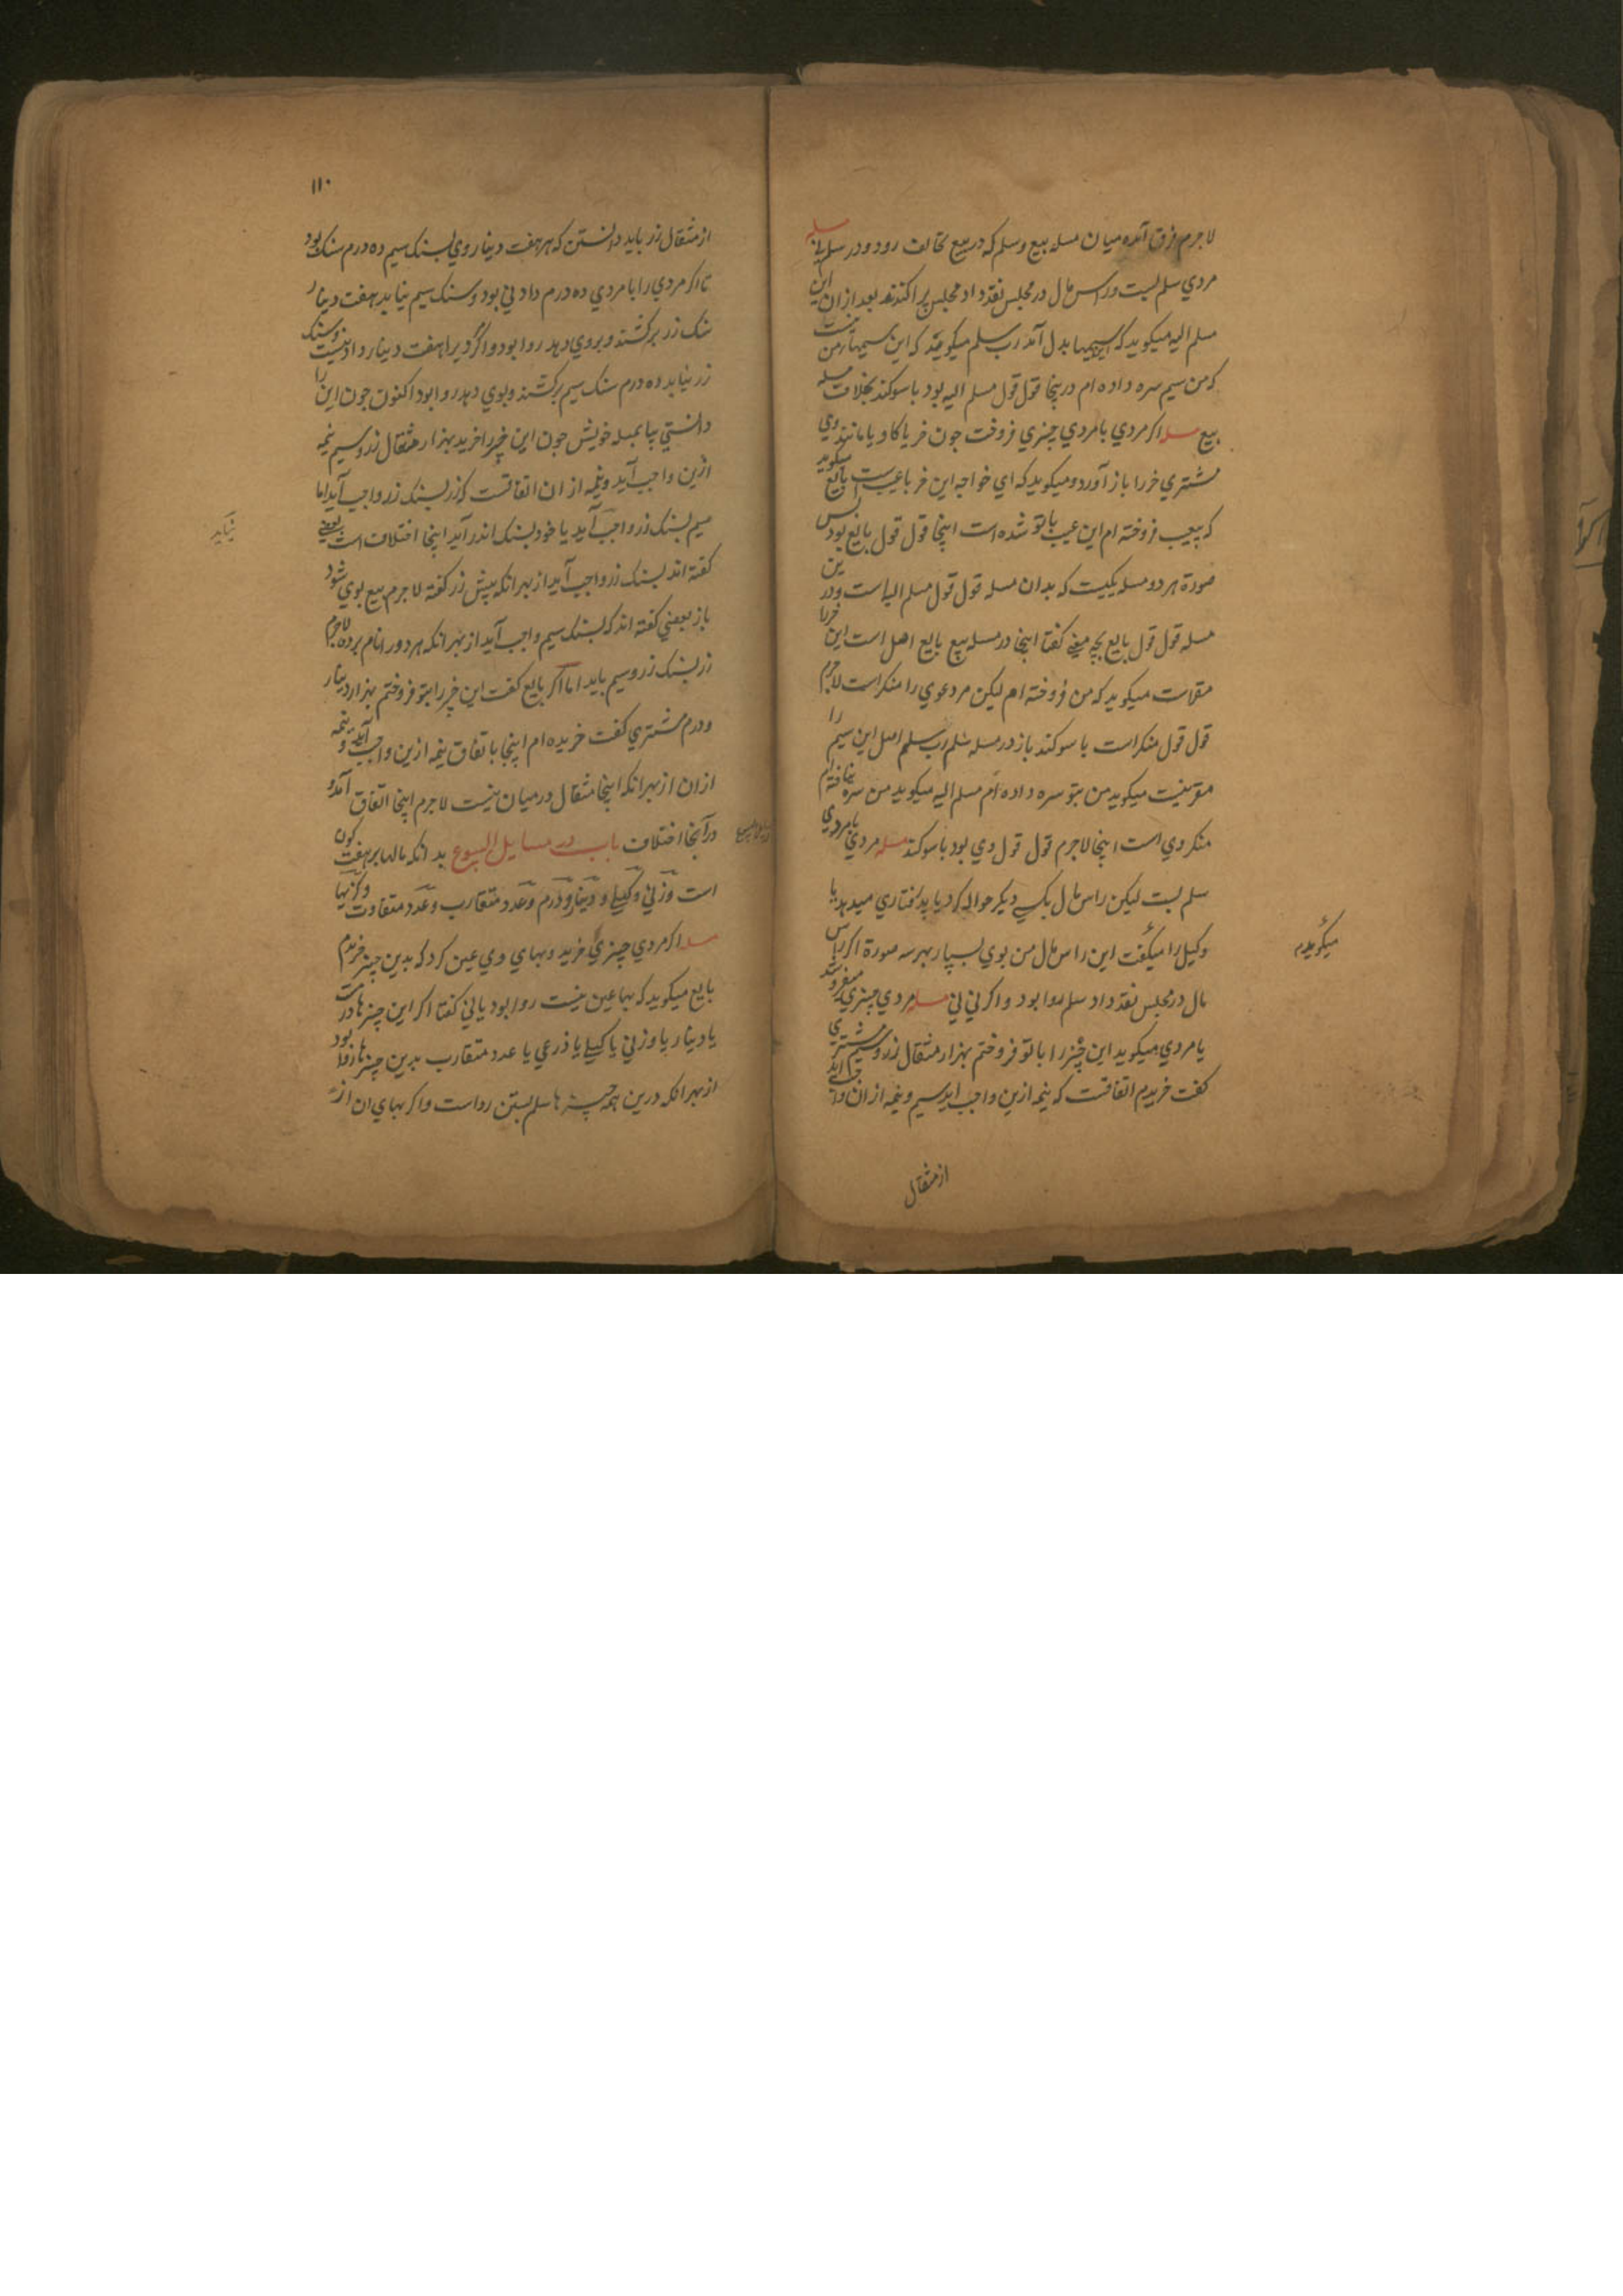 لاجرم فرق آمد میان مسله بیع و سلم که در بیع تخالف رود و در سلم نی مسله
مردی سلم بست و راس مال در مجلس نقد داد مجلس پراکندند بعد ازان این
مسلم الیه میکوید که سیمها بدل آمد رب سلم میکوید که این سیمها ز من نیست
که من سیم سره داده ام درینجا قول قول مسلم الیه بود با سوکند بخلاف مسله
بیع مسله اکر مردی با مردی چیزی فروخت چون خر یا کاو یا مانند وی
مشتری خر را باز آورد و میکوید که ای خواجه این خر با عیب است بایع میکوید
که بیعیب فروخته ام این عیب با تو شده است اینجا قول قول بایع بود پس
صورة هر دو مسله یکیست که بدان مسله قول قول مسلم الیه است و درین
مسله قول قول بایع بچه معنی کفتا اینجا در مسله بیع بایع اصل است این خر را
مقرست میکوید که من فروخته ام لیکن مر دعوی را منکر است لاجرم
قول قول منکر است با سوکند باز در مسله سلم رب سلم اصل این سیم را
مقر نیست میکوید من بتو سره داده ام مسلم الیه میکوید من سره نیافته ام
منکر وی است اینجا لاجرم قول قول وی بود با سوکند مسله مردی با مردی
سلم بست لیکن راس مال بکسی دیکر حواله کرد یا پذرفتاری میدهد یا
وکیل را میکفت این راس مال من بوی بسپار بهر سه صورة اکر راس
مال در مجلس نقد داد سلم روا بود و اکر نی نی مسله مردی چیزی میفروشد
با مردی میکوید این چیز را با تو فروختم بهزار مثقال زر و سیم مشتری
کفت خریدم اتفاقست که نیمه ازین واجب اید سیم و نیمه ازان
میکویدم
از مثقال
۱۱۰
از مثقال زر باید دانستن که هر هفت دینار وی بسنک سیم ده درم سنک بود
تا اکر مردی را با مردی ده درم دادنی بود و سنک سیم نیابد هفت دینار
سنک زر برکشند و بروی دهد روا بود و اکر ویرا هفت دینار دادنیست و سنک
زر نیابد ده درم سنک سیم برکشند و بوی دهد روا بود اکنون چون این را
دانستی بیا بمسله خویش چون این خر را خرید بهزار مثقال زر و سیم نیمه
ازین واجب آید و نیمه از ان اتفاقست که زر بسنک زر واجب آید اما
سیم بسنک زر واجب آید یا خود بسنک اندر آید اینجا اختلاف است بعضی
کفته اند بسنک زر واجب آید از بهر انکه پیش زر کفته لاجرم بیع بوی شود
باز بعضی کفته اند که بسنک سیم واجب آید از بهر انکه هر دو را نام برده لاجرم
زر بسنک زر و سیم باید اما اکر بایع کفت این خر را بتو فروختم بهزار دینار
و درم مشتری کفت خریده ام اینجا باتفاق نیمه ازین واجب آید و نیمه
ازان از بهر انکه اینجا مثقال در میان نیست لاجرم اینجا اتفاق آمد و
در آنجا اختلاف باب در مسایل البیوع بدانکه مالها بر هفت کون
است وزنی و کیلی و دینار و درم و عدد متقارب و عدد متفاوت و کزیها
مسله اکر مردی چیزی خرید و بهای وی عین کرد که بدین چیز خریدم
بایع میکوید که بها عین نیست روا بود یا نی کفتا اکر این چیزها درمست
یا دینار یا وزنی یا کیلی یا ذرعی یا عدد متقارب بدین چیزها روا بود
از بهر انکه درین همه چیزها سلم بستن رواست و اکر بهای ان از
نیاید